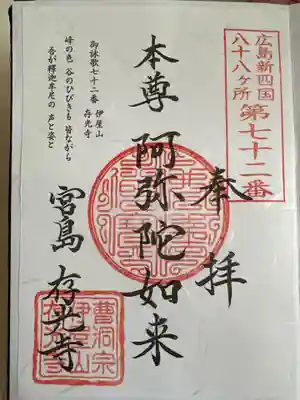 広島新四国
八十八ヶ所
第七十二番
奉拝
本尊 阿弥陀如来
伊屋山
存光寺
御詠歌七十二番
峰の色 谷のひびきも 皆ながら
吾が釋迦牟尼の 声と姿と
宮島 存光寺
曹洞宗
伊屋山
存光寺